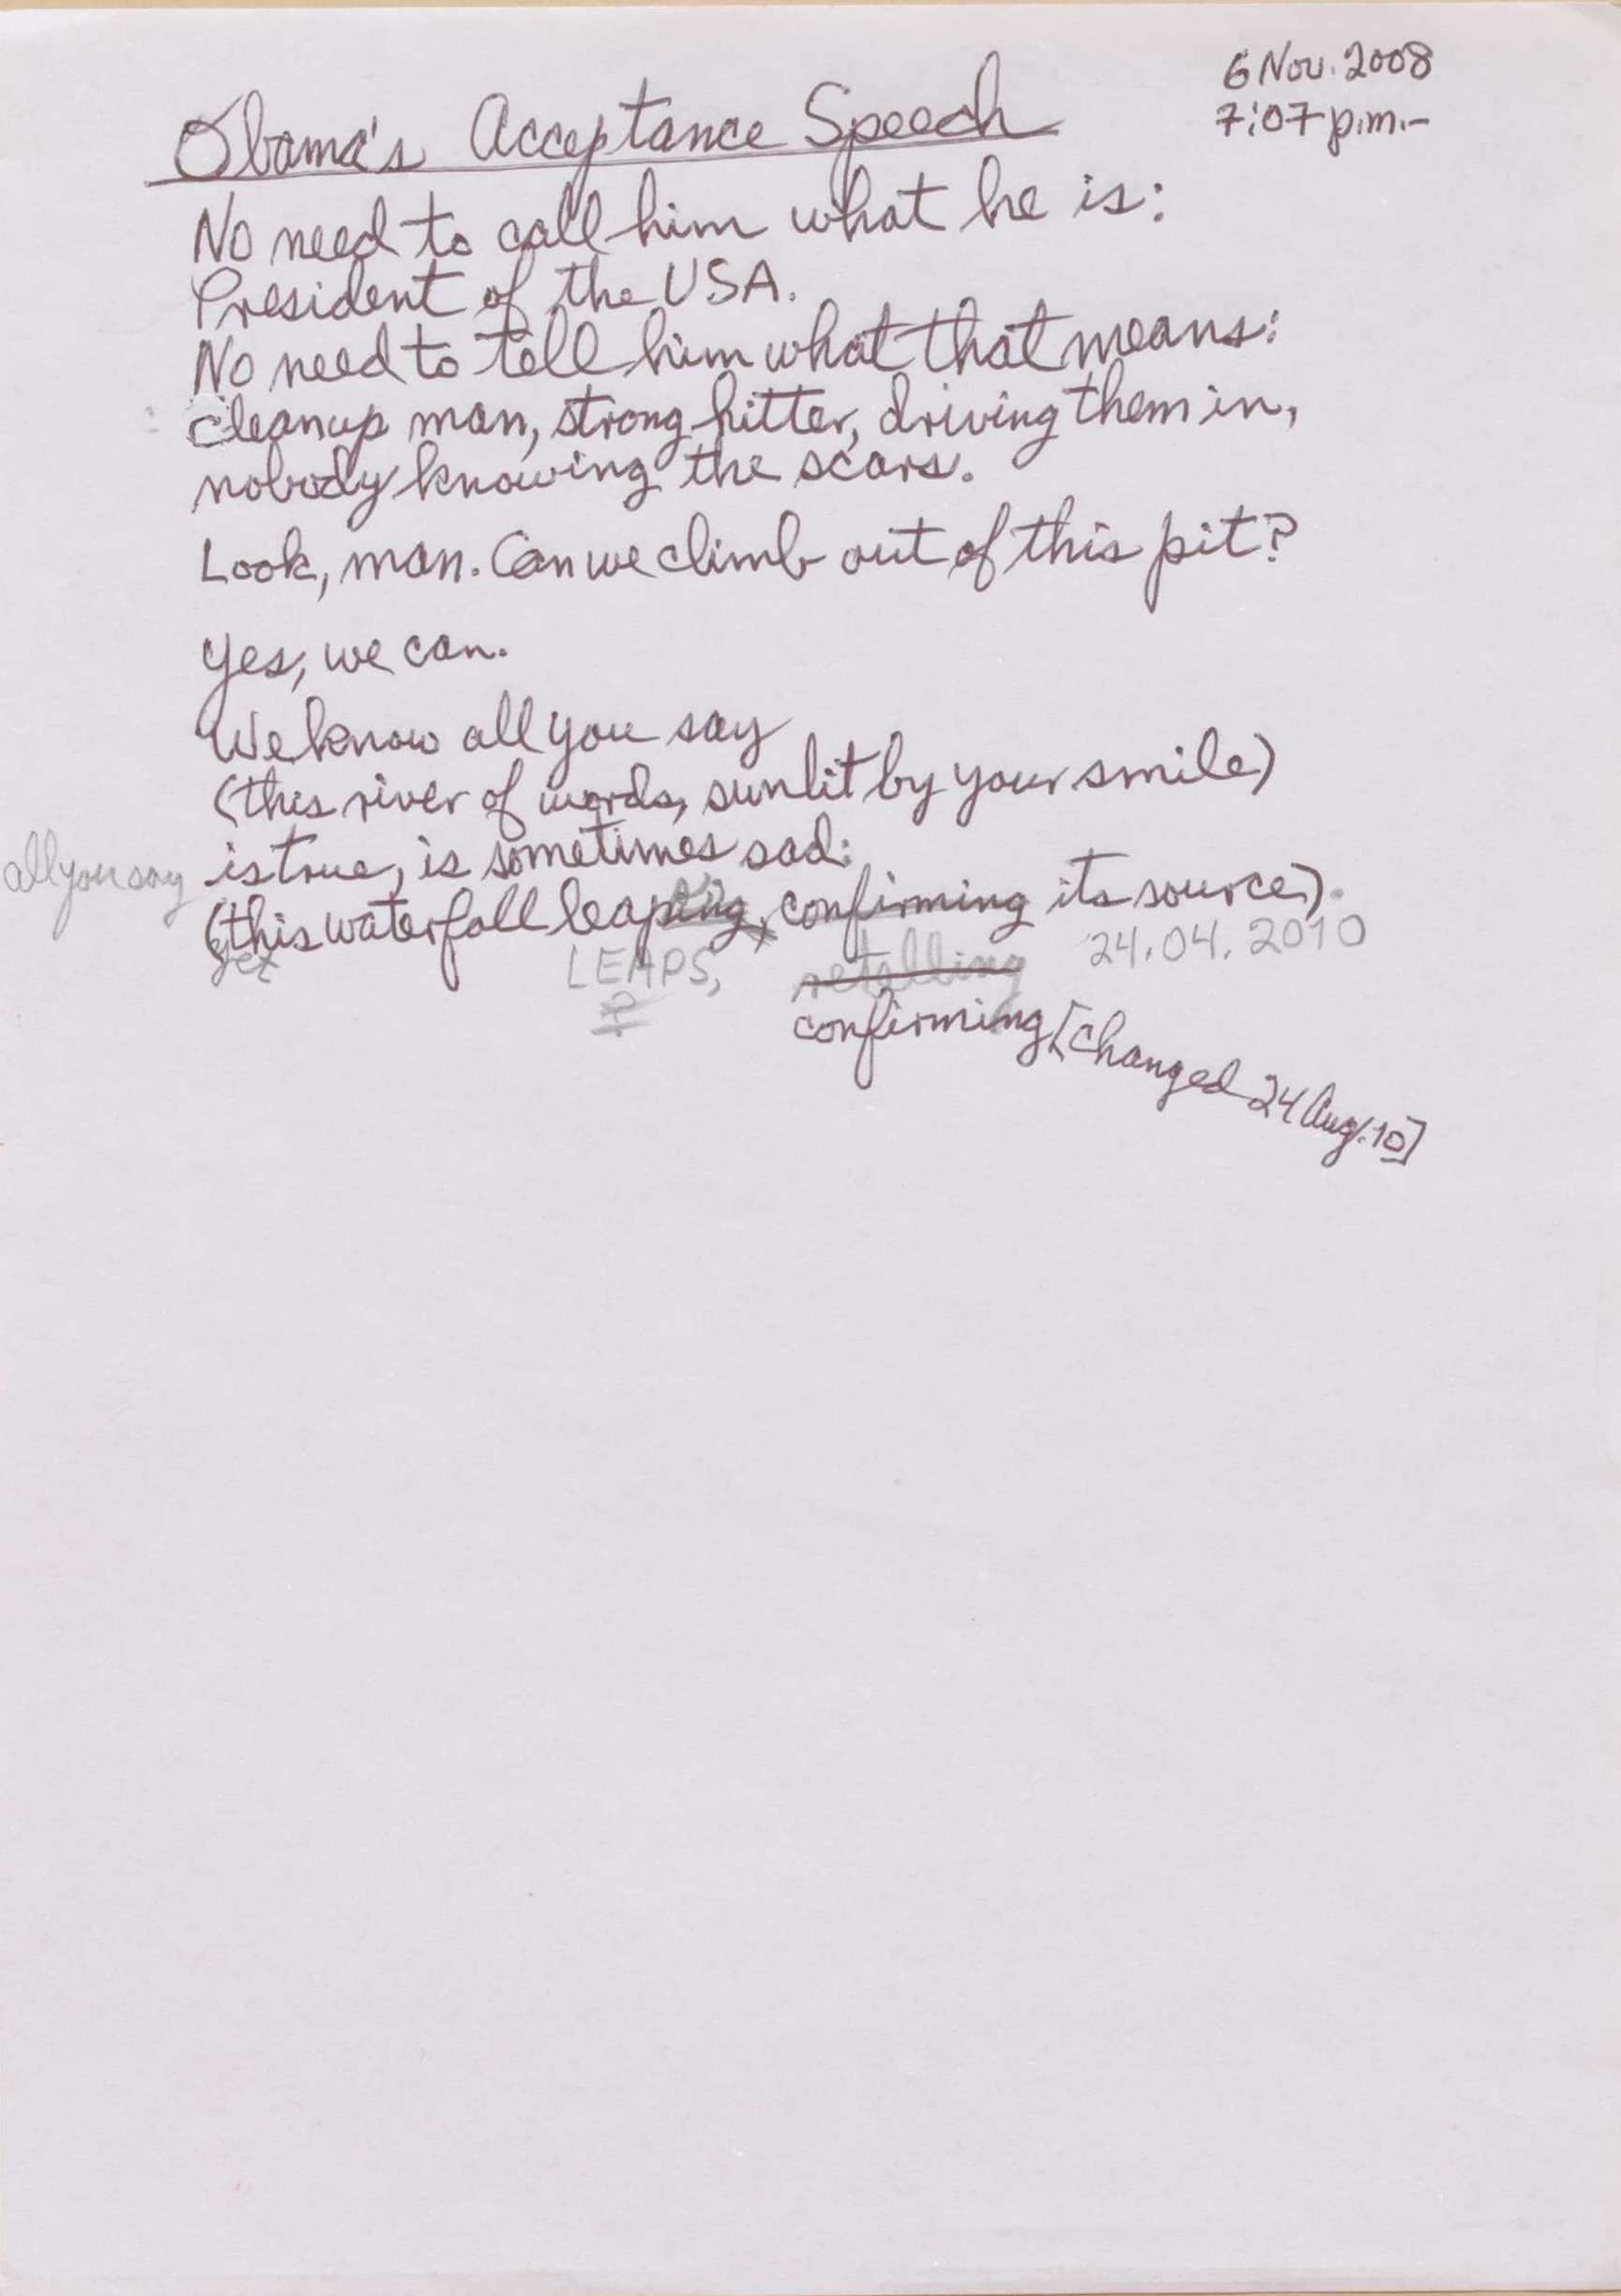 6 Nov. 2008
7:07 p.m.-
Obama's Acceptance Speech
No need to call him what he is:
President of the USA.
No need to tell him what that means:
cleanup man, strong hitter, driving them in,
nobody knowing the scars.
Look, man. Can we climb out of this pit?
Yes, we can.
We know all you say
(this river of words, sunlit by your smile)
all you say is true, is sometimes sad:
(this waterfall leaping, confirming its source).
yet LEAPS, retelling 24.04.2010
?
confirming [changed 24 Aug. 10]